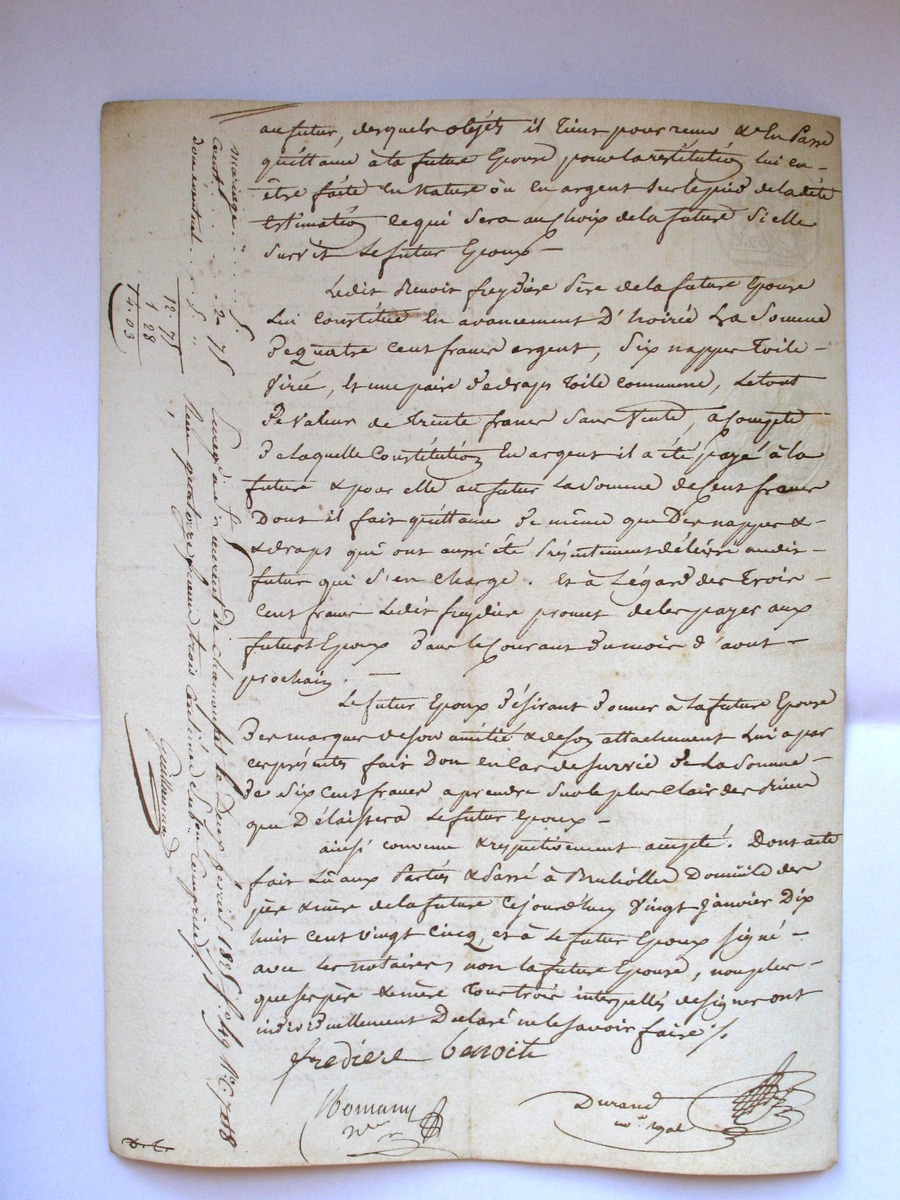 au futur, desquels objets il tient pour reçu & en Passe
quittance à la future Epouse pour la restitution lui en
être faite En Nature ou en argent sur le pied de la dite
Estimation ce qui sera au choix de la future Si elle
survit Le futur Epoux —
Ledit Benoit freydière Père de la future Epouse
lui constitue En avancement D'hoirie La Somme
de quatre cent francs argent, Six nappes Toile
, Et une paire de draps Toile commune, Le tout
de valeur de Trente francs Sans Vente, a Compte
De laquelle Constitution En argent il a été payé à la
future & pour elle au futur La somme de Cent francs
Dont il fait quittance de même que Des nappes &
& draps qui ont aussi été Présentement délivré audit
futur qui s'en charge. Et à L'égard des Trois
Cent francs Ledit freydière promet de les payer aux
futurs Epoux Dans le Courant Du mois d'aout
prochain. —
Le futur Epoux Désirant Donner à la future Epouse
Des marques de son amitié & de son attachement Lui a par
ces présentes fait Don en Cas de survie De La Somme
De Six Cent francs a prendre Sur le plus Clair des biens
que Délaissera Le futur Epoux —
ainsi convenu & respectivement accepté. Dont acte
fait Lû aux Parties & Passé à Domicile des
père & mère de la future Cejourd'huy Vingt Janvier Dix
huit cent vingt Cinq, et à Le futur Epoux Signé
avec les notaires non la future Epouse, non plus
que ses père & mère Tous trois interpellés de signer ont
individuellement Déclaré ne le savoir faire ./.
frediere benoite
Romany
Nre
Durand
Nre royal
mariage . . . 5. "
Const. . . . 2. 75
don mutuel . . 5 "
12. 75
1 28
14. 03
Enregé à St de chamont le Deux février 1825 fo 49 No C. 7 & 8
Reçu quatorze francs trois centimes Dixme comprise.
Guillaumod